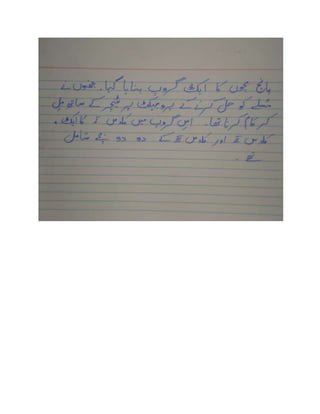 پانچ بچوں کا ایک گروپ بنایا گیا۔ جنہوں نے
مسئلے کو حل کرنے کے پروجیکٹ پر ٹیچر کے ساتھ مل
کر کام کرنا تھا۔ اس گروپ میں کلاس کا ایک ،
کلاس اور کلاس کے دو دو بچے شامل
تھے۔